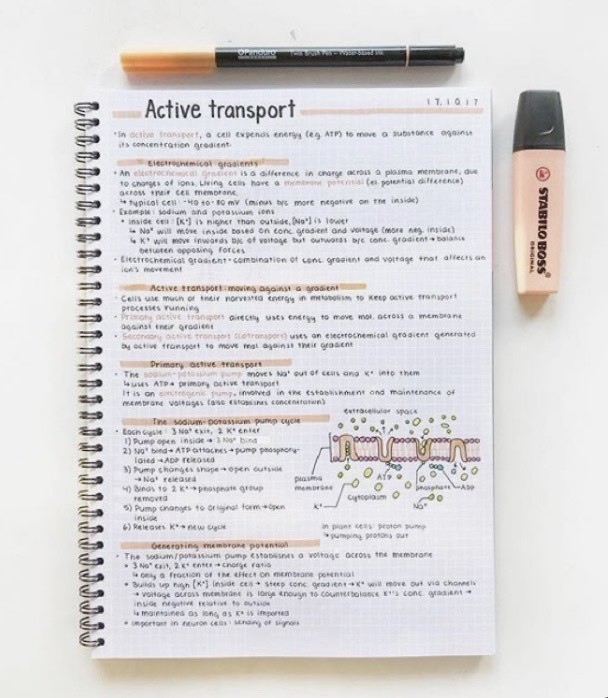 Pendura Twin Brush Pen - Water-based ink
Active transport
17.10.17
STABILO BOSS
ORIGINAL
• In active transport, a cell expends energy (e.g. ATP) to move a substance against
its concentration gradient.
Electrochemical gradients
• An electrochemical gradient is a difference in charge across a plasma membrane, due
to charges of ions. Living cells have a membrane potential (el. potential difference)
across their cell membrane.
↳ typical cell: -40 to -80 mV (minus b/c more negative on the inside)
• Example: sodium and potassium ions
• inside cell: [K⁺] is higher than outside, [Na⁺] is lower
↳ Na⁺ will move inside based on conc. gradient and voltage (more neg. inside)
↳ K⁺ will move inwards b/c of voltage but outwards b/c conc. gradient → balance
between opposing forces
• Electrochemical gradient = combination of conc. gradient and voltage that affects an
ion's movement
Active transport: moving against a gradient
• Cells use much of their harvested energy in metabolism to keep active transport
processes running
• Primary active transport directly uses energy to move mol. across a membrane
against their gradient
• Secondary active transport (cotransport) uses an electrochemical gradient generated
by active transport to move mol. against their gradient
Primary active transport
• The sodium-potassium pump moves Na⁺ out of cells and K⁺ into them
↳ uses ATP → primary active transport
It is an electrogenic pump, involved in the establishment and maintenance of
membrane voltages (also establishes concentration)
The sodium-potassium pump cycle
• Each cycle: 3 Na⁺ exit, 2 K⁺ enter
1) Pump open inside → 3 Na⁺ bind
2) Na⁺ bind → ATP attaches → pump phosphory-
lated → ADP released
3) Pump changes shape → open outside
→ Na⁺ released
4) Binds to 2 K⁺ → phosphate group
removed
5) Pump changes to original form → open
inside
6) Releases K⁺ → new cycle
extracellular space
plasma
membrane
ATP
phosphate
ADP
cytoplasm
K⁺
Na⁺
In plant cells: proton pump
↳ pumping protons out
Generating membrane potential
• The sodium/potassium pump establishes a voltage across the membrane
• 3 Na⁺ exit, 2 K⁺ enter → charge ratio
↳ only a fraction of the effect on membrane potential
• Builds up high [K⁺] inside cell → steep conc. gradient → K⁺ will move out via channels
→ voltage across membrane is large enough to counterbalance K⁺'s conc. gradient →
inside negative relative to outside
↳ maintained as long as K⁺ is imported
• Important in neuron cells: sending of signals